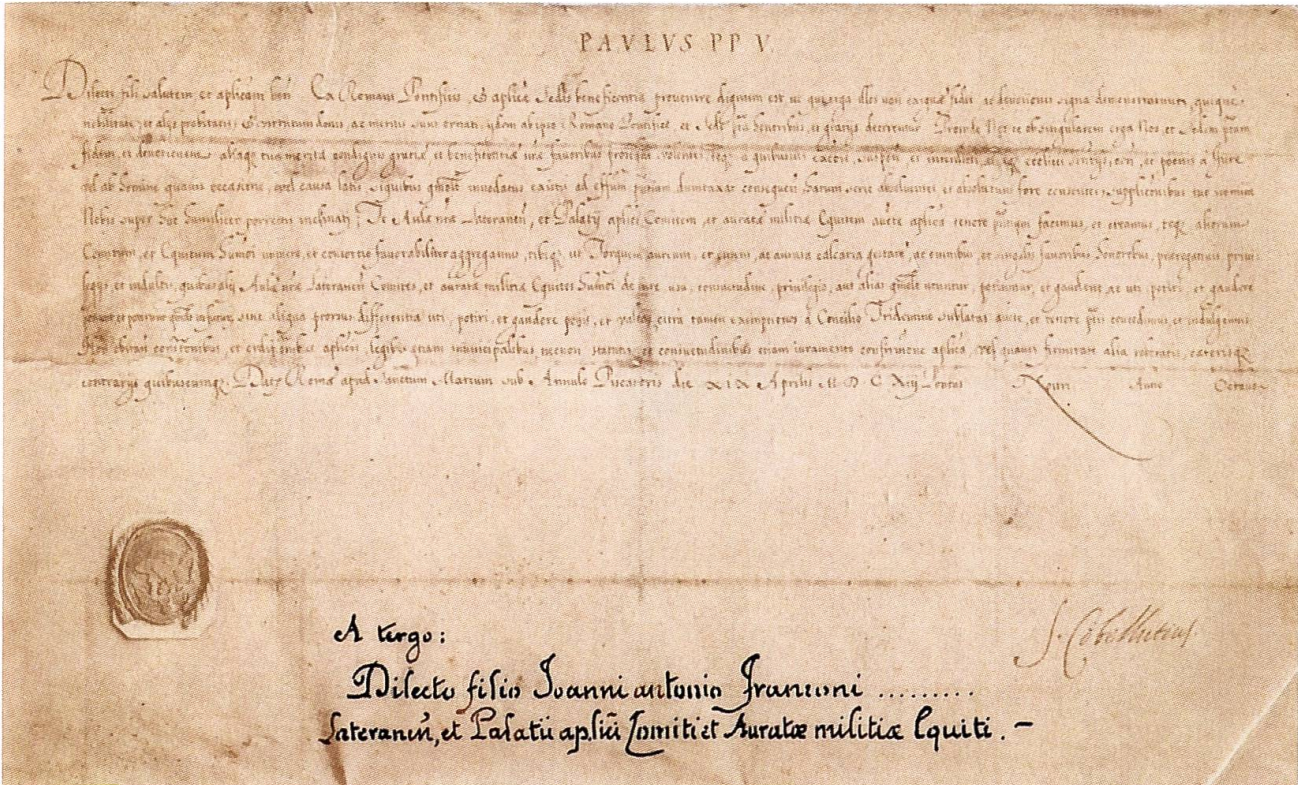 PAVLVS PP V
Dilecte fili salutem et aplicam ben Ex Romani Pontificis, et aplicæ Sedis beneficentia provenire dignum est, ut qui erga illos non exiguæ fidei, ac devotionis signa demonstrarunt, quique
nobilitate, et alijs probitatis, et virtutum donis, ac meritis sunt ornati, ijdem ab ipso Romano Pontifice, et Sede honoribus, et gratijs decorentur Proinde Nos te ob singularem erga Nos, et Sedem
fidem, et devotionem aliaque tua merita condignis gratiæ, et beneficentiæ favoribus prosequi volentes, a quibusvis et interdicti, et pœnis a Iure
vel ab homine quavis occasione, vel causa latis, siquibus innodatus existis ad effum dumtaxat consequen harum serie absolventes et absolutum fore censentes, supplicationibus tuo nomine
Nobis super hoc humiliter porrectis inclinati, Te Aulæ nræ Lateranen, et Palatij aplici Comitem, et auratæ militiæ Equitem aucte aplica tenore facimus, et creamus, teq aliorum
Comitum, et Equitum numero, et consortio favorabiliter aggregamus, tibiq ut Torquem aureum, et ensem, ac aurata calcaria gestare, ac omnibus et singulis favoribus honoribus, prærogativis privi
legijs, et indultis, quibus alij Aulæ nræ Lateranen Comites, et auratæ militiæ Equites de iure, usu, consuetudine, privilegio, aut alias utuntur, potiuntur, et gaudent, ac uti, potiri, et gaudere
possunt et poterunt sine aliqua prorsus differentia uti, potiri, et gaudere citra tamen exemptiones a Concilio Tridentino sublatas aucte, et tenore concedimus, et indulgemus
Non obstan et ordinibus aplicis, legibus etiam municipalibus statutis et consuetudinibus etiam iuramento confirmone aplica, vel quavis firmitate alia roboratis, cæterisq
contrarijs quibuscumque. Datu Romæ apud Sanctum Marcum sub Annulo Piscatoris die XIX Aprilis M D C Xij Pontus Nouri Anno Octavo
S. Cobellutius
A tergo:
Dilecto filio Joanni antonio Franconi .........
Lateranen, et Palatii aplici Comiti et Auratæ militiæ Equiti. –